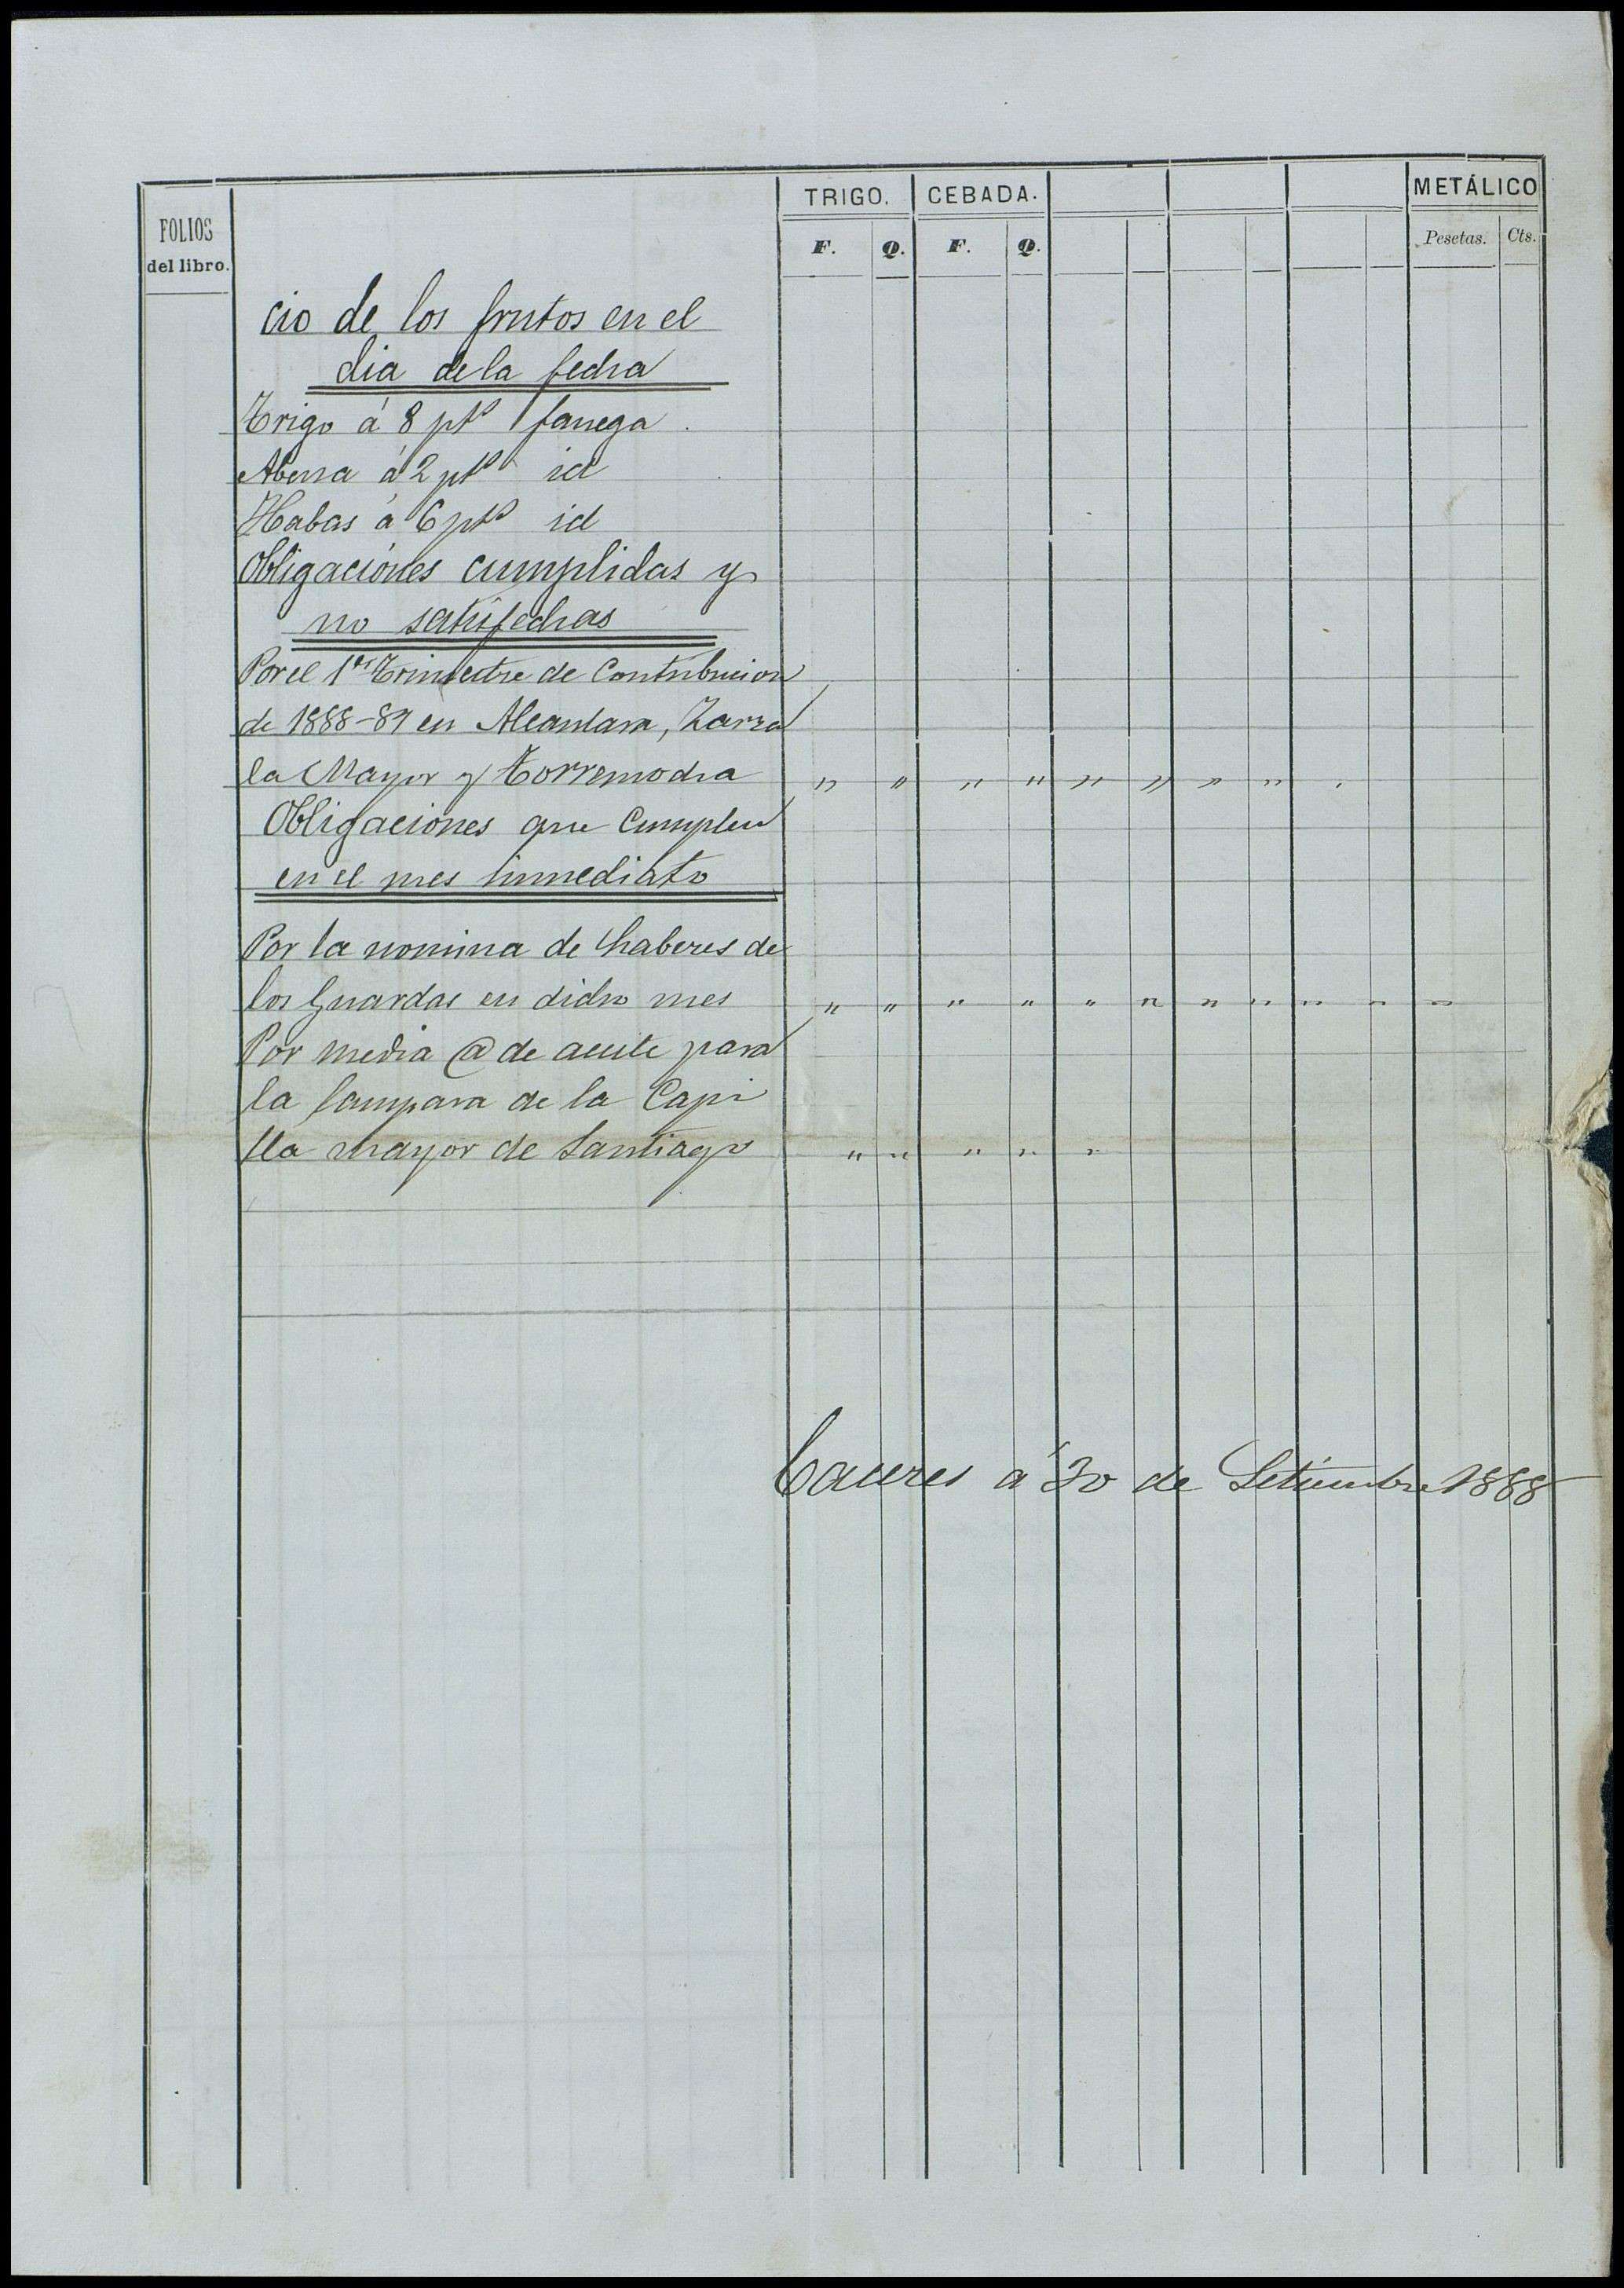 FOLIOS
del libro.
TRIGO. CEBADA. METÁLICO
F. Q. F. Q. Pesetas. Cts.
cio de los frutos en el
dia de la fecha
Trigo á 8 pts fanega
Abena á 2 pts id
Habas á 6 pts id
Obligaciónes cumplidas y
no satisfechas
Por el 1er Trimestre de Contribucion
de 1888-89 en Alcantara, Zarza
la Mayor y Torremocha " " " " " " " "
Obligaciónes que Cumplen
en el mes inmediato
Por la nomina de haberes de
los Guardas en dicho mes " " " " " " " " " " "
Por media @ de aceite para
la lampara de la Capi
lla mayor de Santiago " " " " "
Caceres á 30 de Setiembre 1888